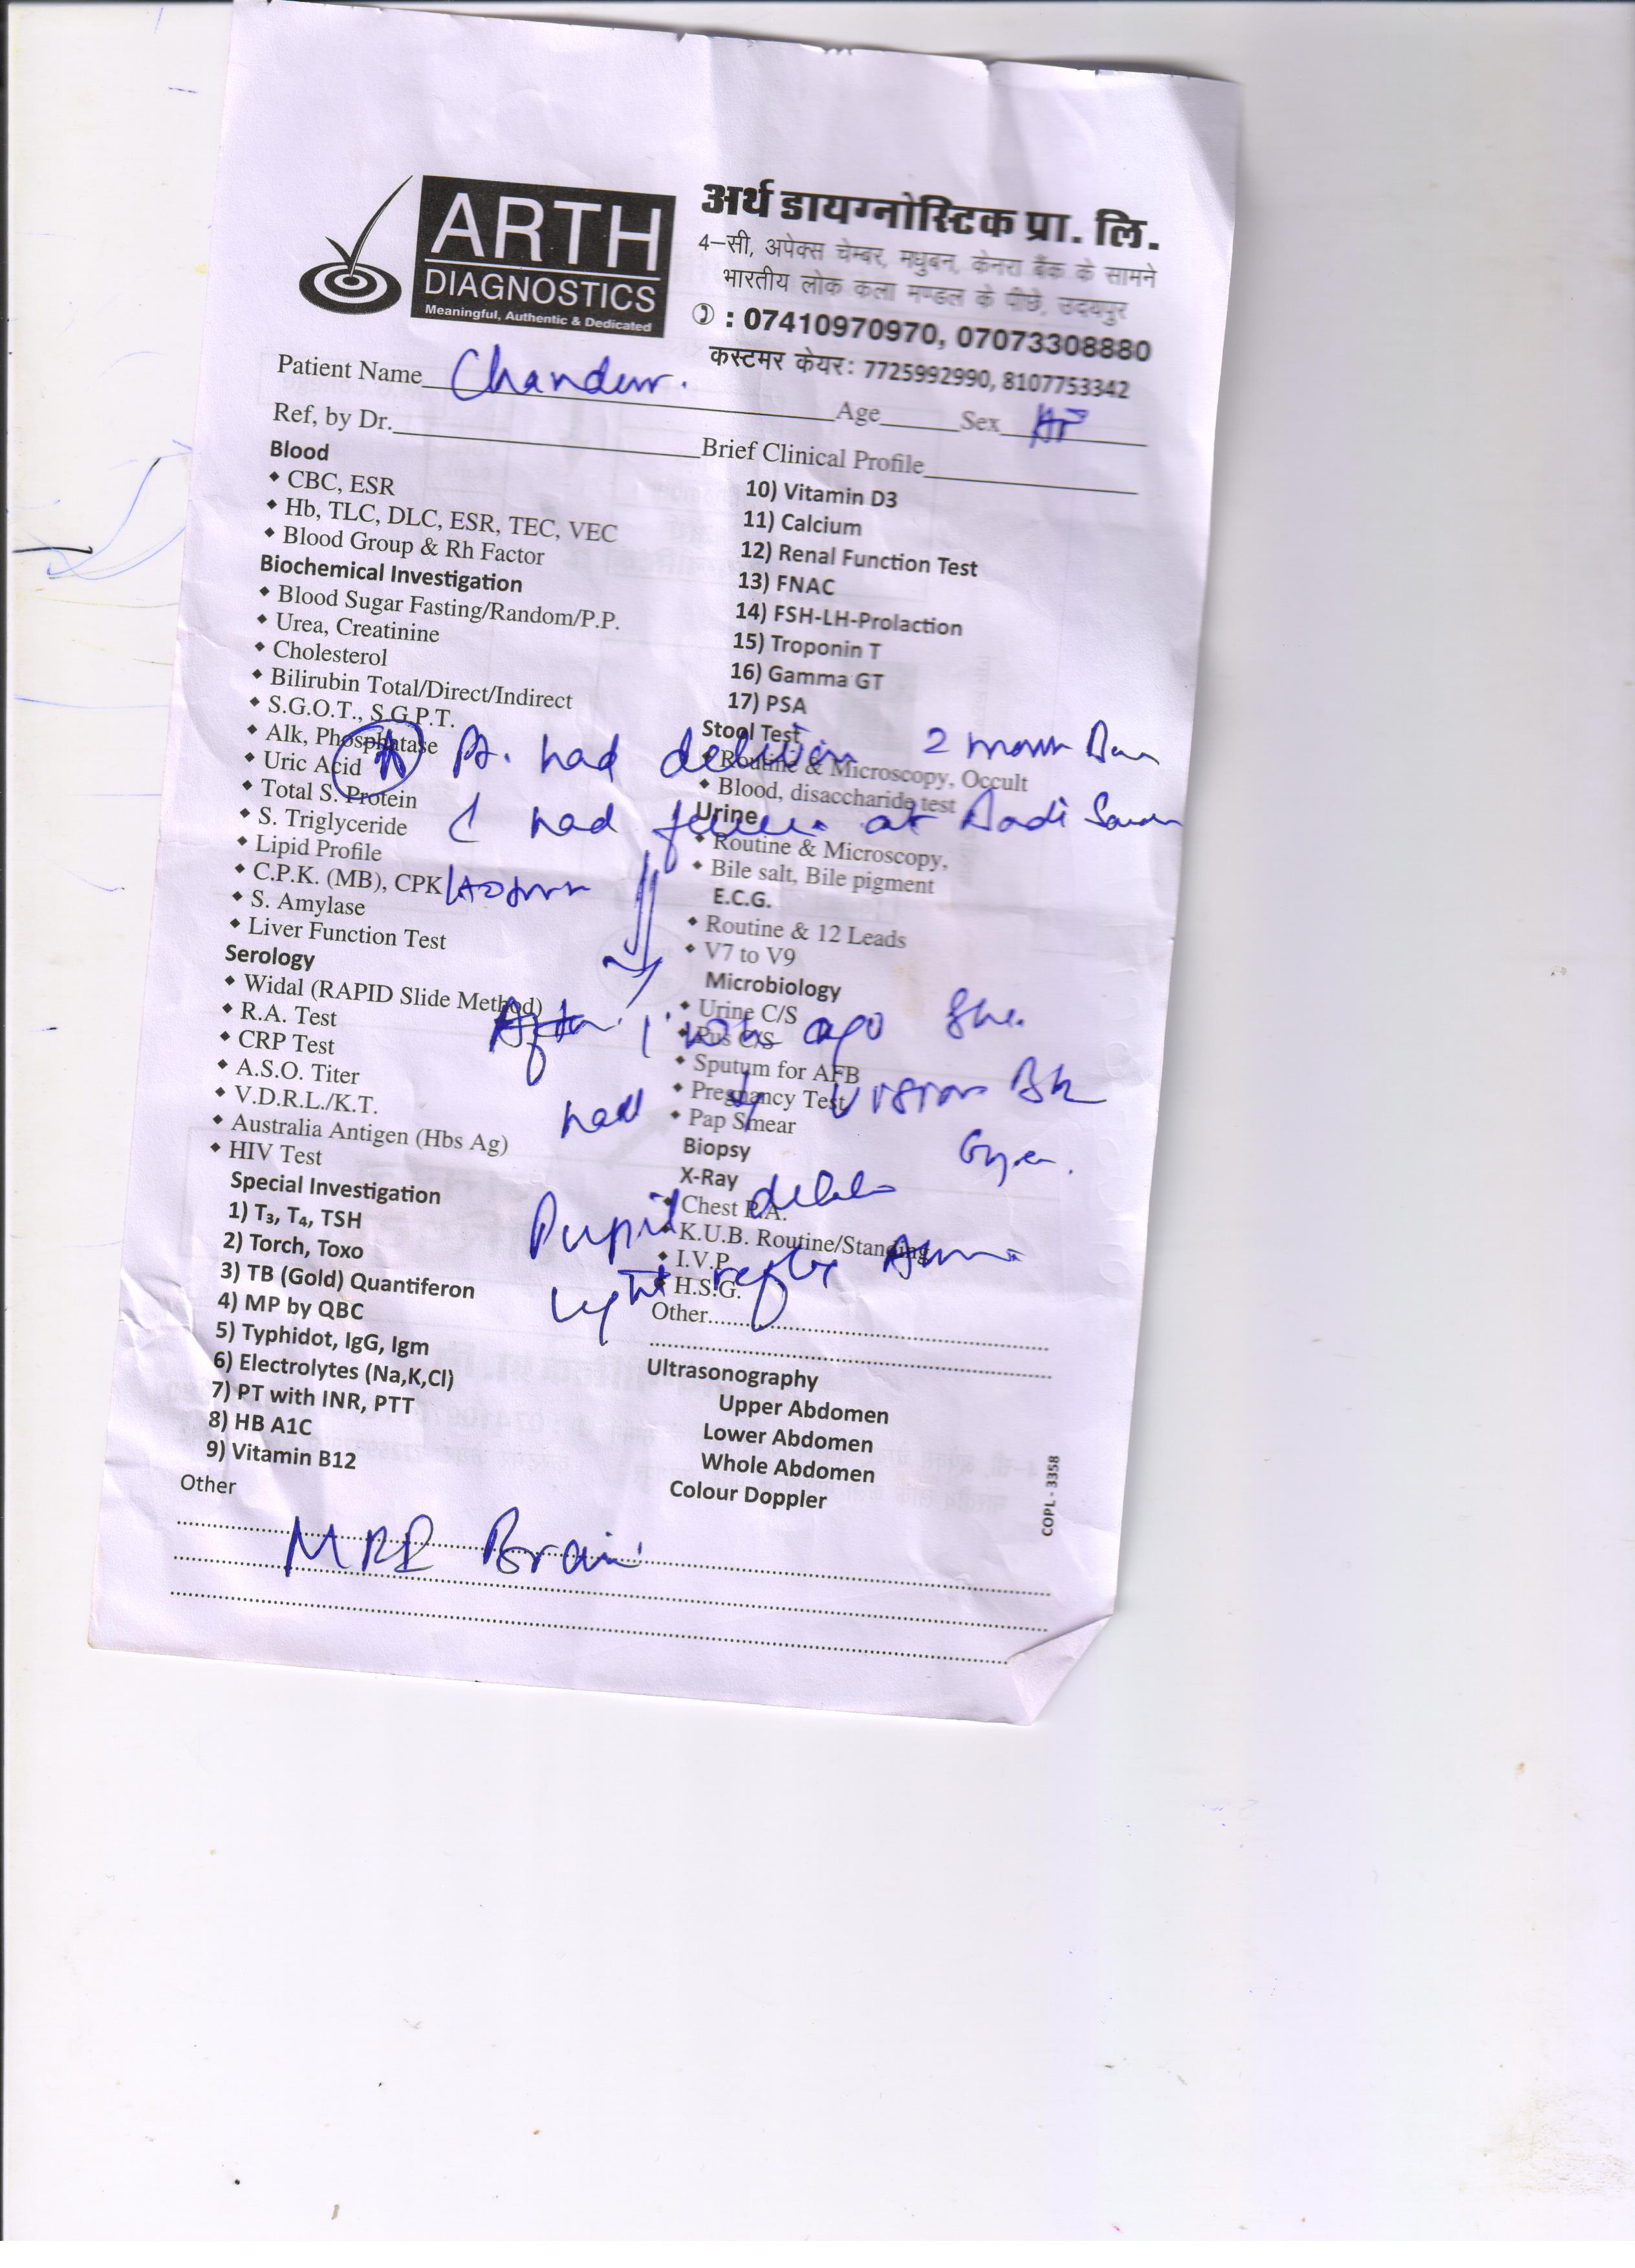 ARTH
DIAGNOSTICS
Meaningful, Authentic & Dedicated
अर्थ डायग्नोस्टिक प्रा. लि.
4–सी, अपेक्स चेम्बर, मधुबन, केनरा बैंक के सामने
भारतीय लोक कला मण्डल के पीछे, उदयपुर
: 07410970970, 07073308880
कस्टमर केयर: 7725992990, 8107753342
Patient Name
Age Sex
Ref, by Dr. Brief Clinical Profile
Blood
CBC, ESR
Hb, TLC, DLC, ESR, TEC, VEC
Blood Group & Rh Factor
Biochemical Investigation
Blood Sugar Fasting/Random/P.P.
Urea, Creatinine
Cholesterol
Bilirubin Total/Direct/Indirect
S.G.O.T., S.G.P.T.
Alk, Phosphatase
Uric Acid
Total S. Protein
S. Triglyceride
Lipid Profile
C.P.K. (MB), CPK
S. Amylase
Liver Function Test
Serology
Widal (RAPID Slide Method)
R.A. Test
CRP Test
A.S.O. Titer
V.D.R.L./K.T.
Australia Antigen (Hbs Ag)
HIV Test
Special Investigation
1) T₃, T₄, TSH
2) Torch, Toxo
3) TB (Gold) Quantiferon
4) MP by QBC
5) Typhidot, IgG, Igm
6) Electrolytes (Na,K,Cl)
7) PT with INR, PTT
8) HB A1C
9) Vitamin B12
Other
10) Vitamin D3
11) Calcium
12) Renal Function Test
13) FNAC
14) FSH-LH-Prolaction
15) Troponin T
16) Gamma GT
17) PSA
Stool Test
Routine & Microscopy, Occult
Blood, disaccharide test
Urine
Routine & Microscopy,
Bile salt, Bile pigment
E.C.G.
Routine & 12 Leads
V7 to V9
Microbiology
Urine C/S
Pus C/S
Sputum for AFB
Pregnancy Test
Pap Smear
Biopsy
X-Ray
Chest P.A.
K.U.B. Routine/Standing
I.V.P.
H.S.G.
Other
Ultrasonography
Upper Abdomen
Lower Abdomen
Whole Abdomen
Colour Doppler
COPL - 3358
Pt. had 2 month
had at
ago She
had vision
Pupil
Light reflex
MRI Brain